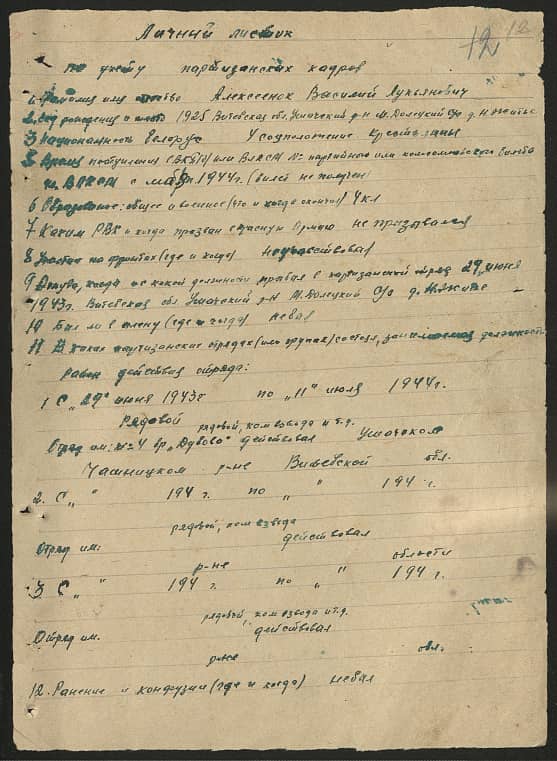 12 12
Личный листок
по учёту партизанских кадров
1 Фамилия имя отчество Алексеенок Василий Лукьянович
2. Год рождения и место 1925 Витебская обл. Ушачский р-н М. Долецкий с/с д.
3 Национальность белорус Усоцположение крестьянин
5 Время поступления СВКП(б) или ВЛКСМ № партийного или комсомольского билета
чл. ВЛКСМ с мая 1944 г. (билет не получен)
6 Образование: общее и военное (что и когда окончил) 4 кл
7 Каким РВК и когда призван в Красную Армию не призывался
8 Участие на фронтах (где и когда) неучаствовал
9 Откуда, когда и с какой должности прибыл в партизанский отряд 29 июня
1943 г. Витебская обл Ушачский р-н М. Долецкий с/с д.
10 Был ли в плену (где и когда) небыл
11 В каких партизанских отрядах (или группах) состоял, занимаемая должность
Район действия отряда:
1 С „29" июня 1943 г по „11" июля 1944 г.
Рядовой
рядовой, ком. взвода и т.д.
Отряд им: № 4 бр. „Дубова" действовал Ушачском
Чашницком р-не Витебской обл.
2. С „ " 194 г. по „ " 194 г.
рядовой, ком взвода
Отряд им: действовал
р-не области
3 С „ " 194 г. по „ " 194 г.
рядовой, ком взвода и т.д.
Отряд им. действовал
р-не обл.
12. Ранение и контузии (где и когда) небыл